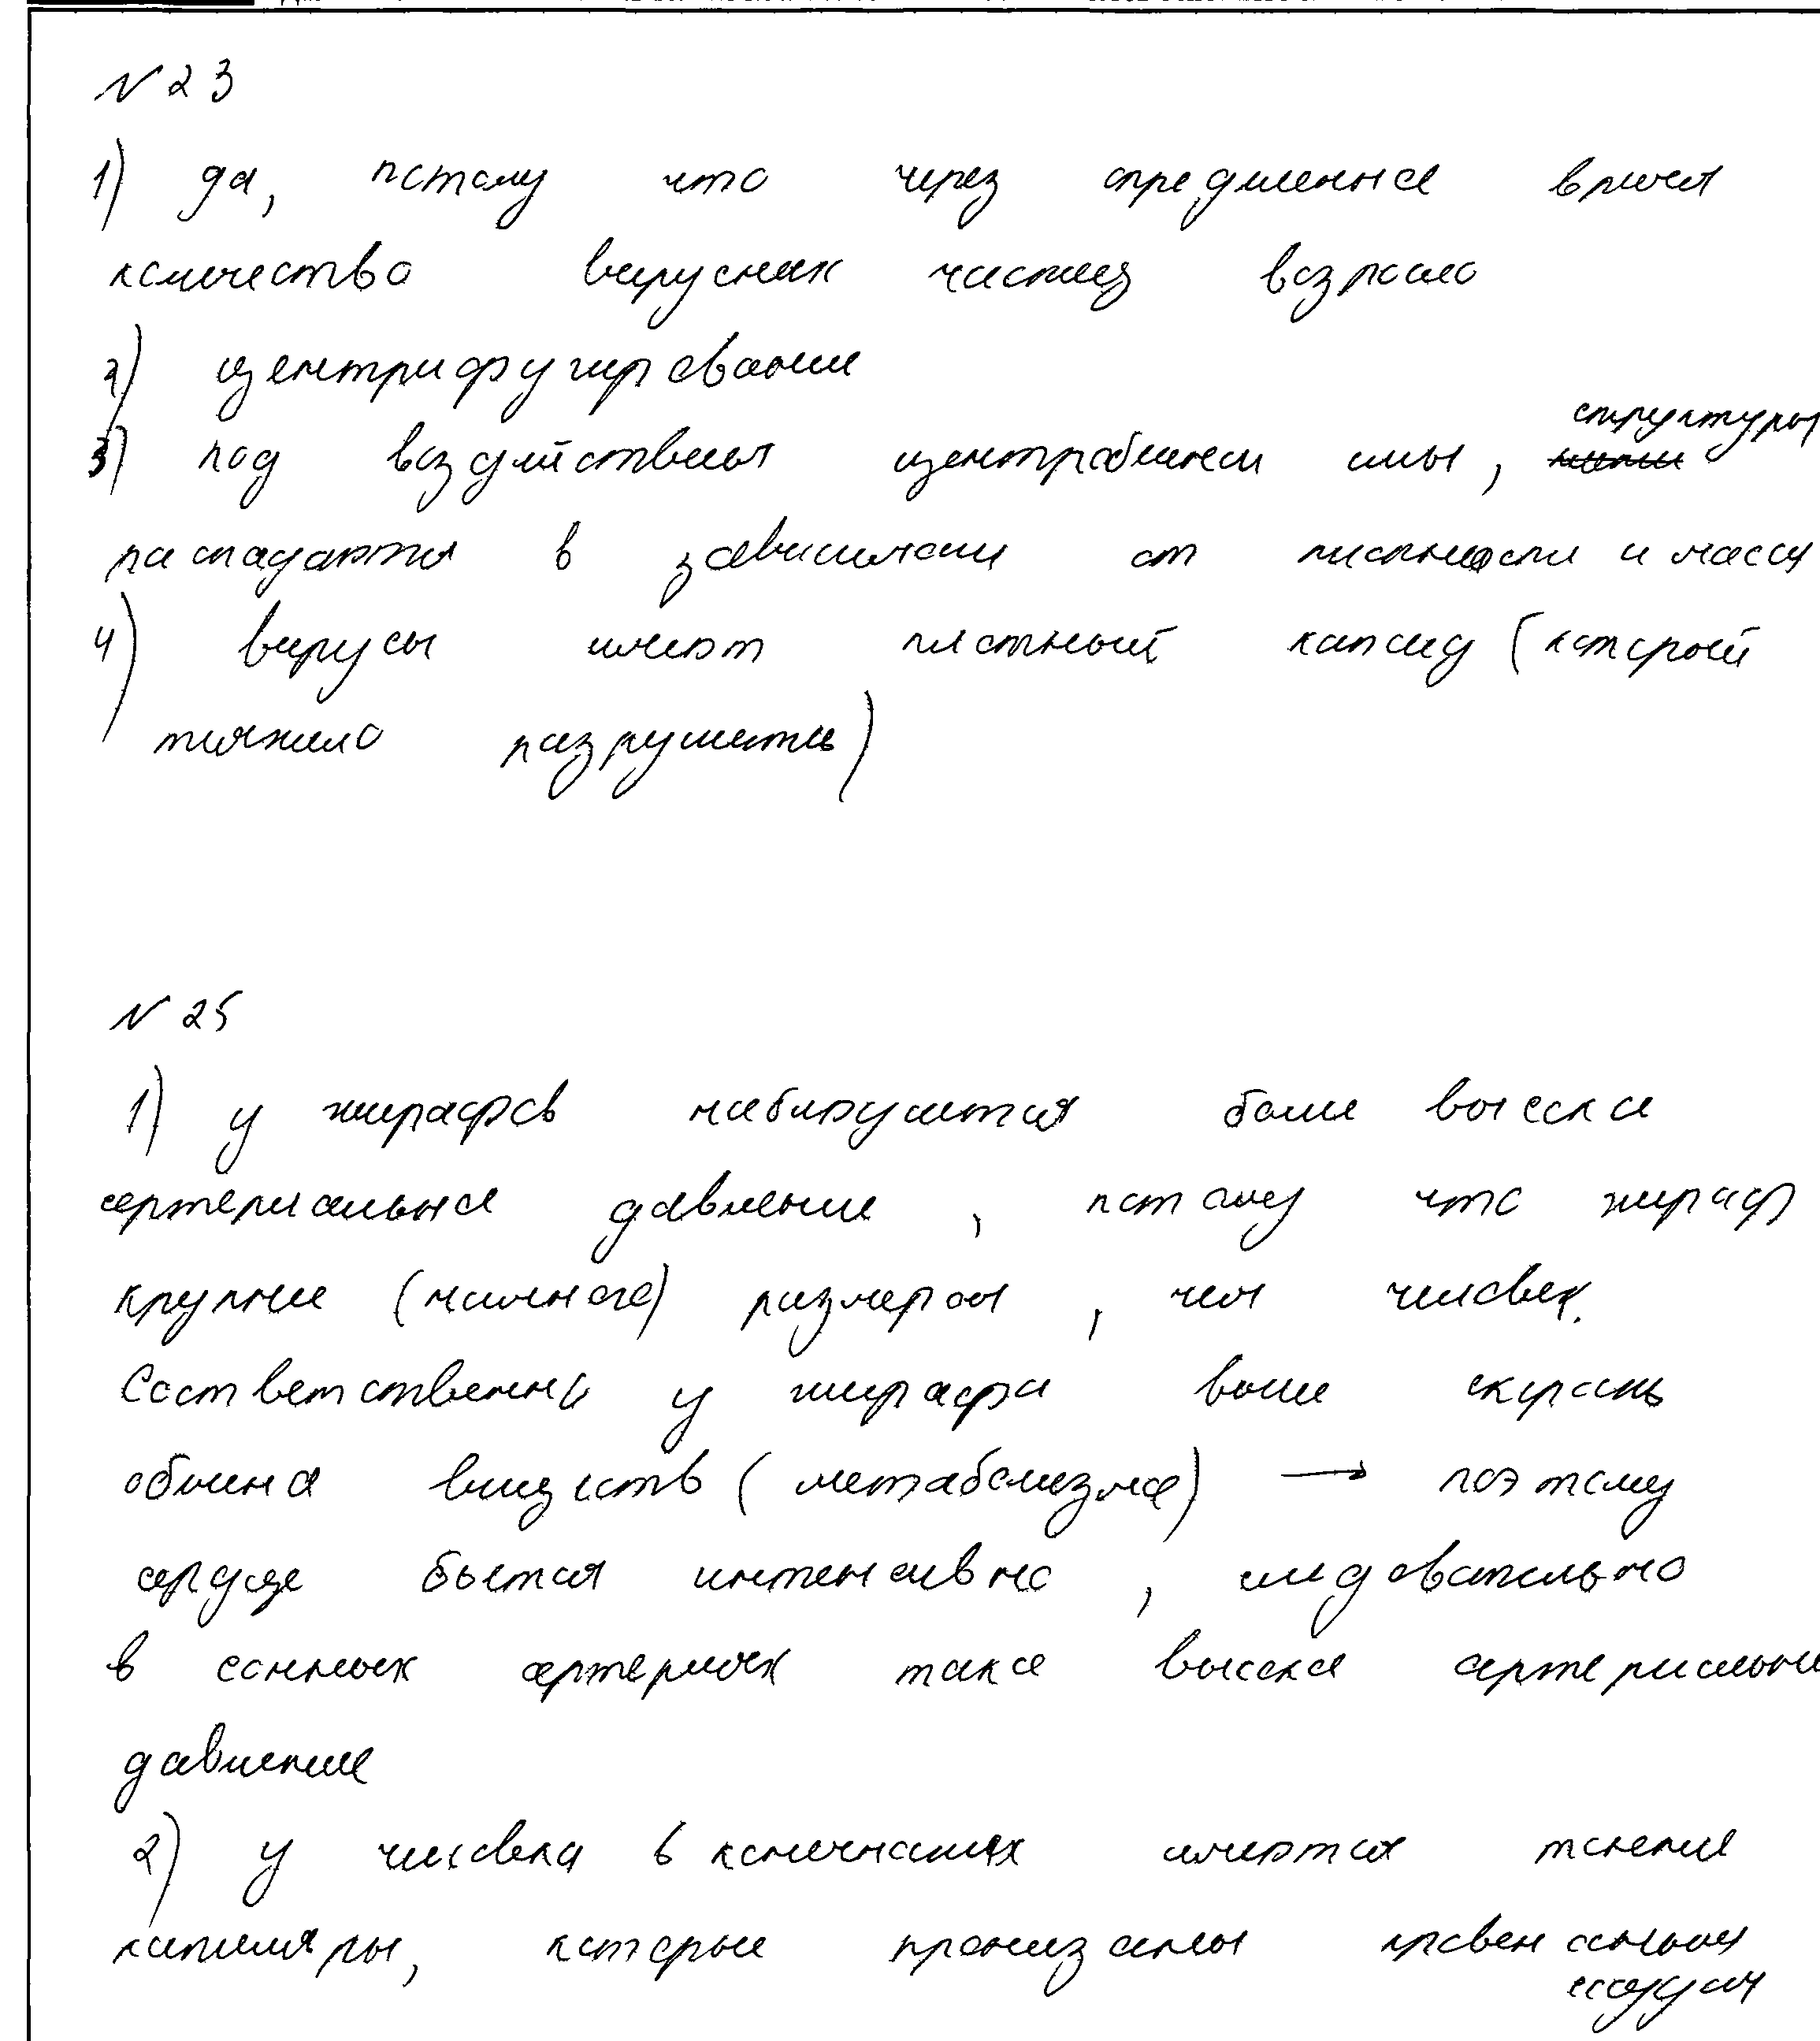 № 23
1) да, потому что через определенное время
количество вирусных частиц возросло
2) центрифугирование
3) под воздействием центробежной силы, структуры
распадаются в зависимости от плотности и массы
4) вирусы имеют плотный капсид (который
тяжело разрушить)
№ 25
1) у жирафов наблюдается более высокое
артериальное давление, потому что жираф
крупнее (намного) размером, чем человек.
Соответственно у жирафа выше скорость
обмена веществ (метаболизма) → поэтому
сердце бьется интенсивно, следовательно
в сонных артериях такое высокое артериальное
давление
2) у человека в конечностях имеются тонкие
капилляры, которые пронизаны кровеносными
сосудами